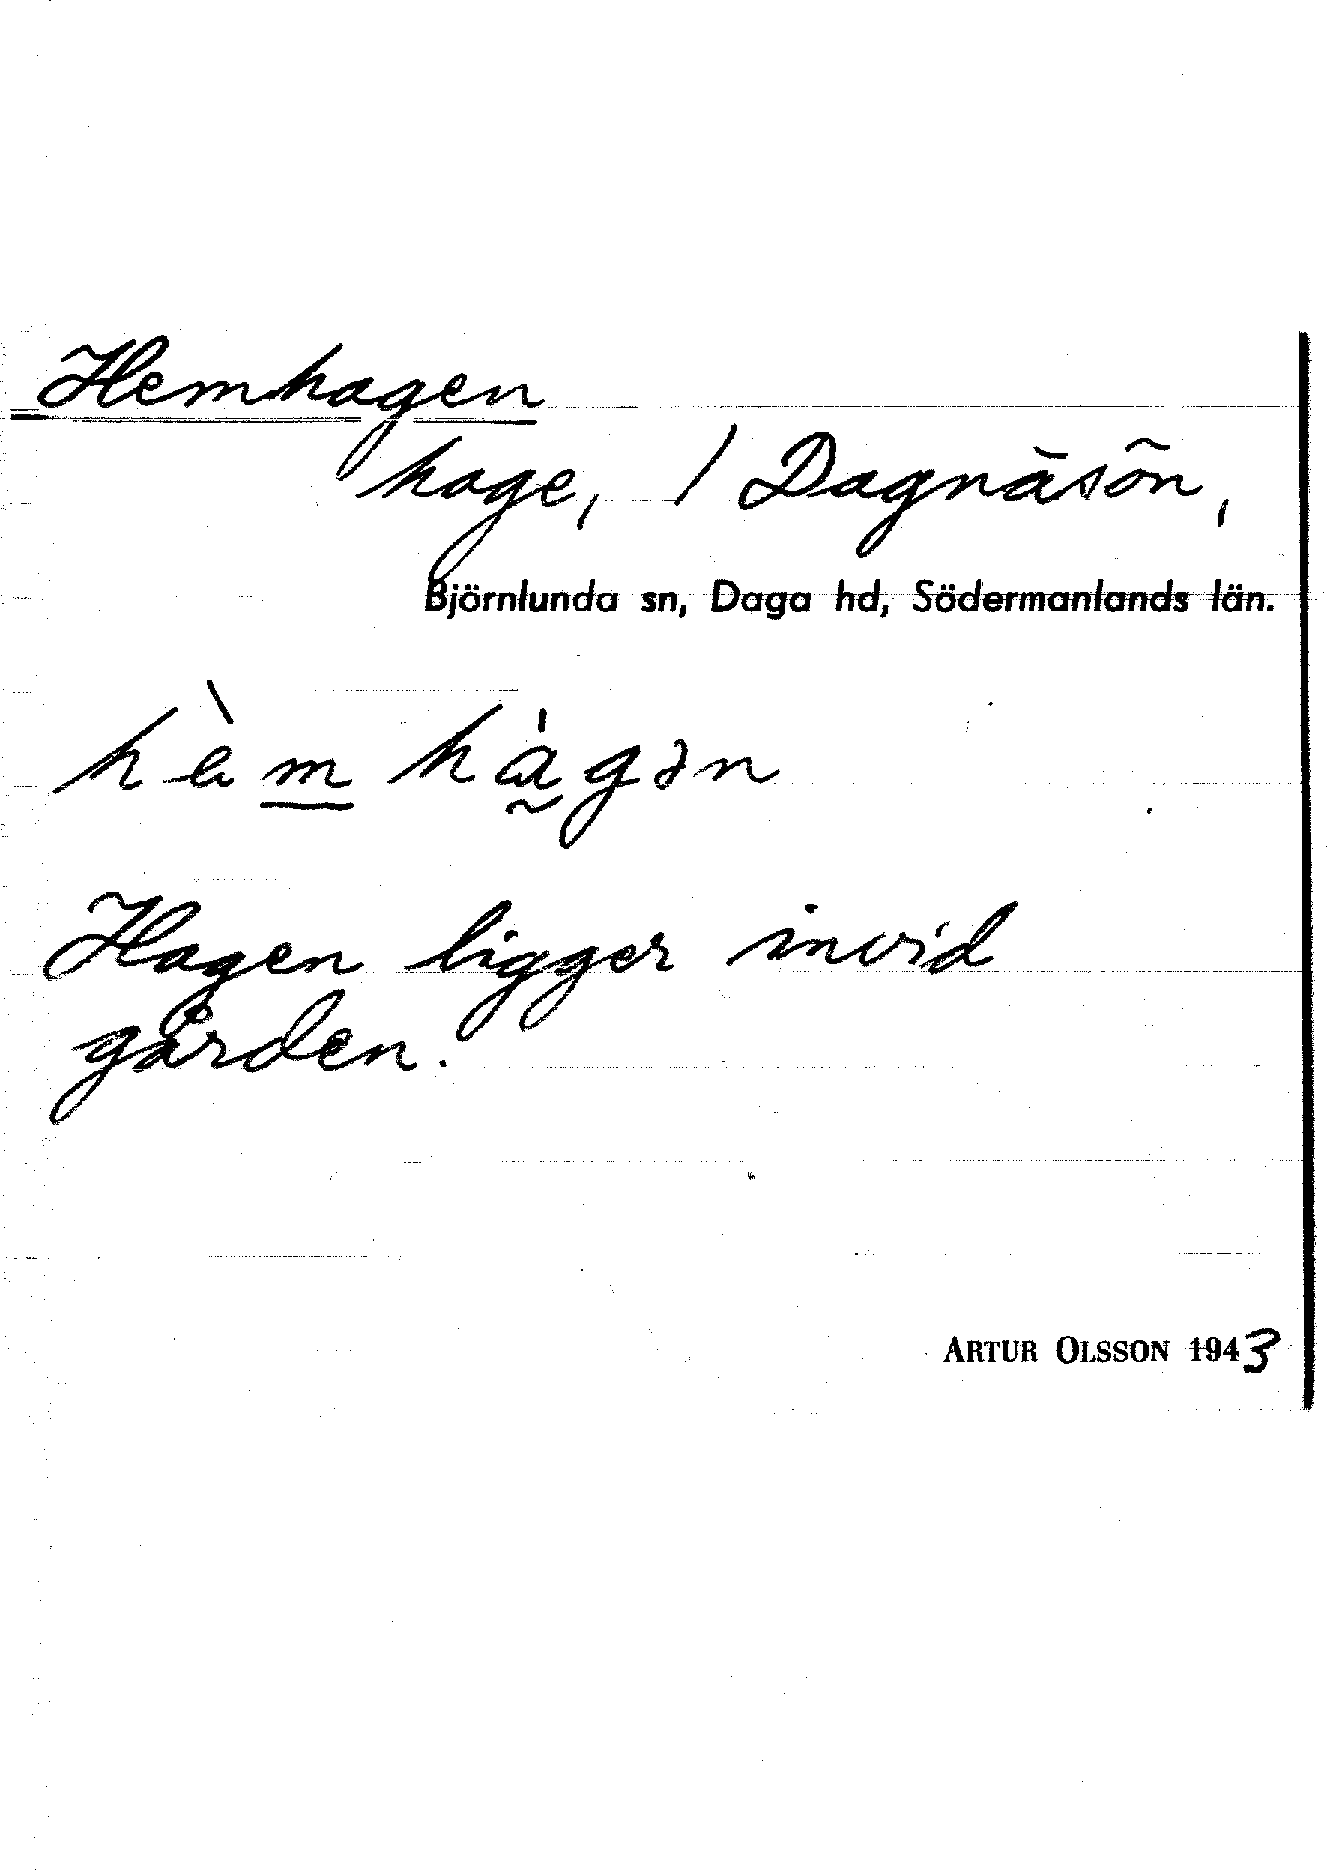 Hemhagen
hage, / Dagnäsön,
Björnlunda sn, Daga hd, Södermanlands län.
hèm hàgən
Hagen ligger invid
gården.
ARTUR OLSSON 1943